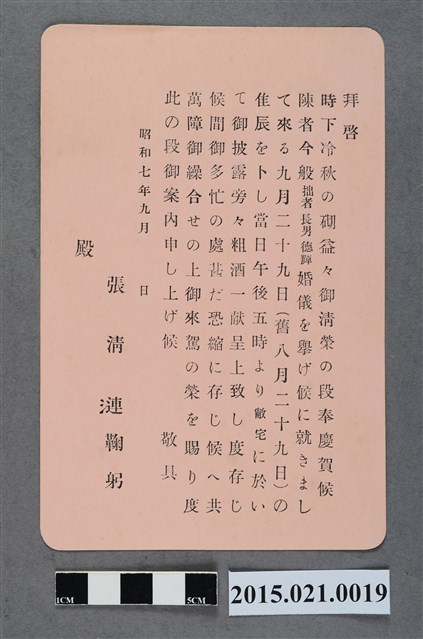 拜啓
時下冷秋の砌益々御淸榮の段奉慶賀候
陳者今般拙者長男德輝婚儀を擧げ候に就きまし
て來る九月二十九日(舊八月二十九日)の
隹辰を卜し當日午後五時より敝宅に於い
て御披露旁々粗酒一献呈上致し度存じ
候間御多忙の處甚だ恐縮に存じ候へ共
萬障御繰合せの上御來駕の榮を賜り度
此の段御案內申し上げ候 敬具
昭和七年九月 日
張淸漣鞠躬
殿
1CM
5CM
2015.021.0019